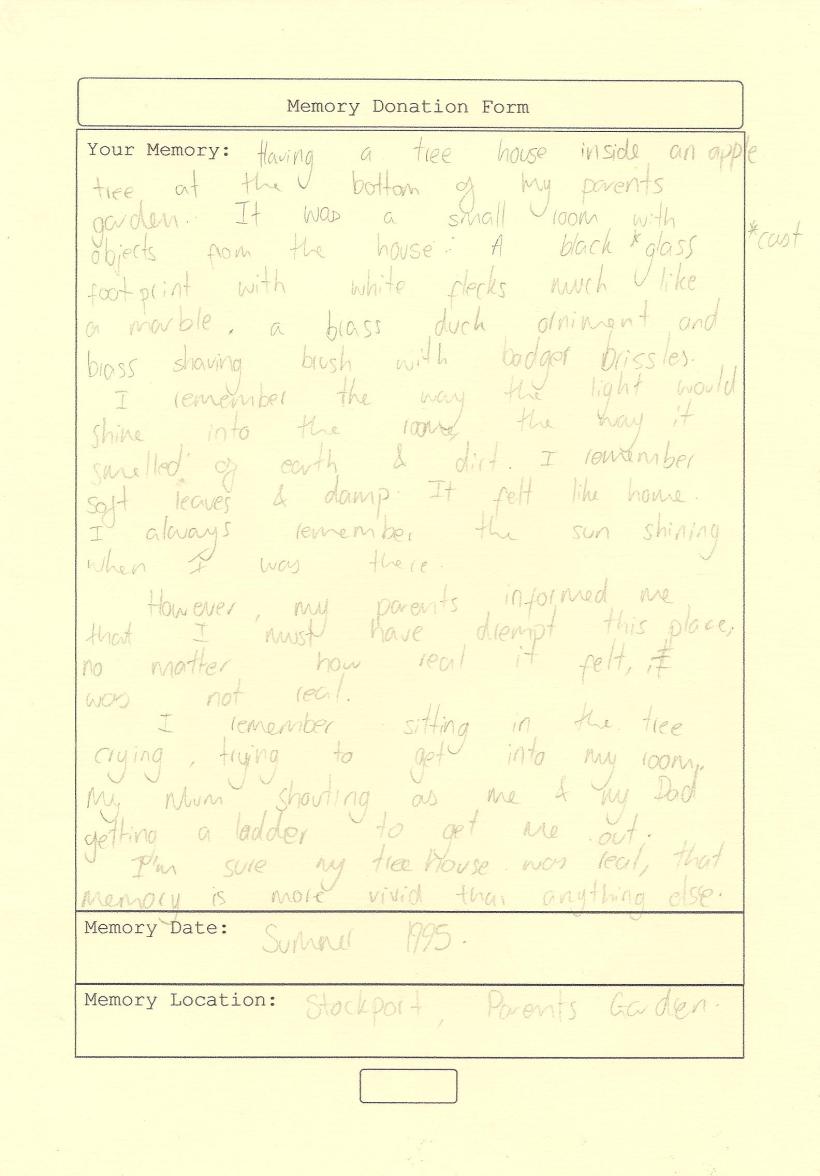 Memory Donation Form
Your Memory: Having a tree house inside an apple
tree at the bottom of my parents
garden. It was a small room with
objects from the house: A black *glass *cast
footprint with white flecks much like
a marble, a brass duck orniment and
brass shaving brush with badger brissles.
I remember the way the light would
shine into the room, the way it
smelled of earth & dirt. I remember
soft leaves & damp. It felt like home.
I always remember the sun shining
when I was there.
However, my parents informed me
that I must have drempt this place,
no matter how real it felt, it
was not real.
I remember sitting in the tree
crying, trying to get into my room,
My Mum shouting as me & my Dad
getting a ladder to get me out.
I'm sure my tree House was real, that
memory is more vivid than anything else.
Memory Date: Summer 1995.
Memory Location: Stockport, Parents Garden.